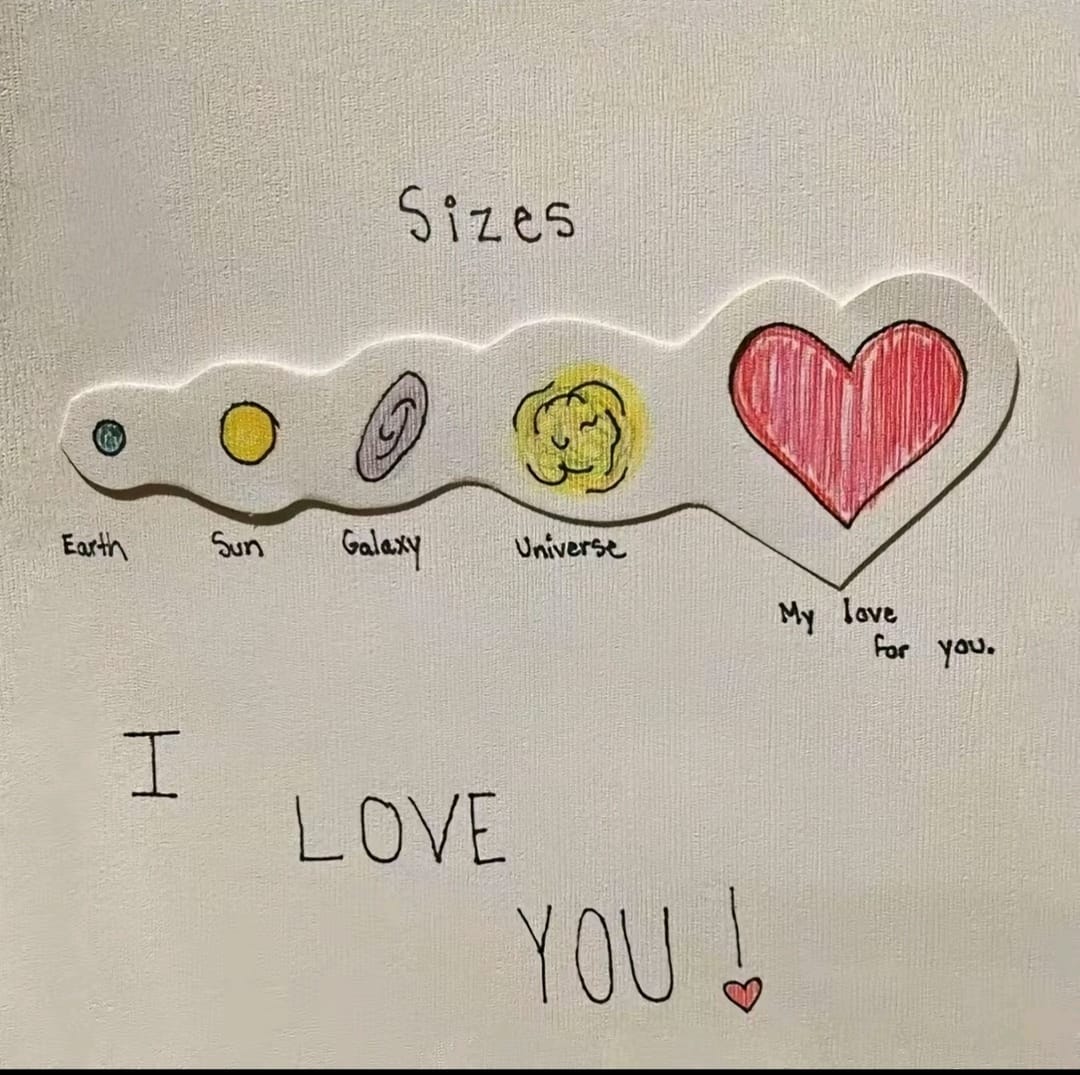 Sizes
Earth Sun Galaxy Universe
My love
for you.
I
LOVE
YOU!